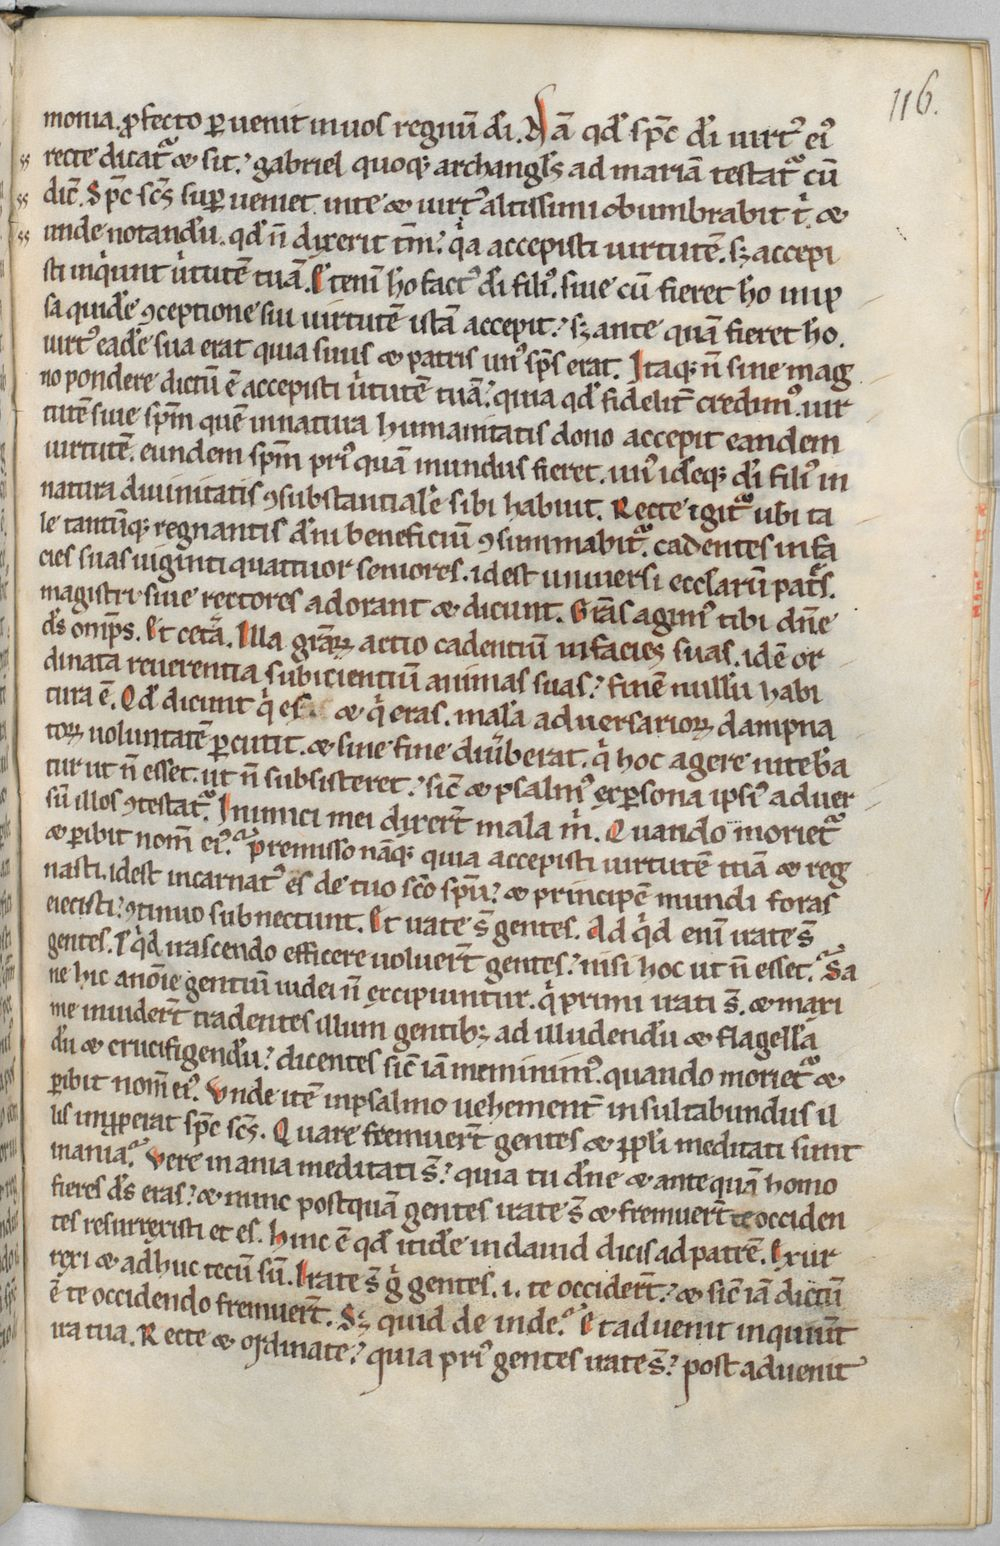 116.
monia. ꝓfecto ꝑuenit in uos regnū dī. Nā qđ spc̄ dī uirtꝰ eiꝰ
recte dicat᷑ ⁊ sit? gabriel quoqꝫ archangl̄s ad mariā testat᷑ cū
dic̄. Sp̄c sc̄s suꝑueniet in te ⁊ uirtꝰ altissimi obumbrabit t̄. ⁊
inde notandū. qđ n̄ dixerit tm̄? q̓a accepisti uirtutē. sꝫ accepi
sti inq̓unt ur̓tutē tuā. Etenī ho factꝰ dī filiꝰ. siue cū fieret ho in ip
sa quidē ꝯceptione siu uirtutē istā accepit? sꝫ ante quā fieret ho.
uirtꝰ eadē sua erat quia suus ⁊ patris unꝰ sp̄s erat. Itaqꝫ n̄ sine mag
no pondere dictū ē accepisti ur̓tutē tuā? quia qđ fidelit̄ credimꝰ. uir
tutē siue sp̄m quē in natura humanitatis dono accepit eandem
uirtutē. eundem sp̄m priꝰ quā mundus fieret. unꝰ idēqꝫ dī filiꝰ in
natura diuinitatis ꝯsubstantialē sibi habuit. Recte igit᷑ ubi ta
le tantūqꝫ regnantis dn̄i beneficiū ꝯsummabit᷑. cadentes in fa
cies suas uiginti quattuor seniores. idest uniuersi eccl̄arū patr̄s.
magistri siue rectores adorant ⁊ dicunt. Gr̄as agimꝰ tibi dn̄e
ds̄ om̄ps. Et cet̄a. Illa gr̄arꝝ actio cadentiū in facies suas. idē or
dinata reuerentia subicientiū animas suas? finē nullū habi
tura ē. Qđ dicunt q̓ es ⁊ q̓ eras. mala aduersariorꝝ dampna
torꝝ uoluntatē ꝑcutit. ⁊ sine fine diūberat. q̓ hoc agere nitebā
tur ut n̄ esset. ut n̄ subsisteret? sic̄ ⁊ psalmꝰ ex ꝑsona ipsiꝰ aduer
sū illos ꝯtestat᷑. Inimici mei dixer̄t mala m̓. Quando moriet᷑
⁊ ꝑibit nom̄ eiꝰ? premisso nāqꝫ quia accepisti uirtutē tuā ⁊ reg
nasti. idest incarnatꝰ es de tuo sc̄o spū? ⁊ principē mundi foras
eiecisti? ꝯtinuo subnectunt. Et irate s̄ gentes. Ad q̓d enī irate s̄
gentes. ł q̓d irascendo efficere uoluer̄t gentes? nisi hoc ut n̄ esset? Sa
ne hic a noīe gentiū iudei n̄ excipiuntur. q̓ primi irati s̄. ⁊ maxi
me inuider̄t tradentes illum gentibꝫ ad illudendū ⁊ flagellā
dū ⁊ crucifigendū? dicentes sic̄ iā meminimꝰ. quando moriet᷑ ⁊
ꝑibit nom̄ eiꝰ. Vnde itē in psalmo uehement̄ insultabundus il
lis inꝓperat sp̄c sc̄s. Quare fremuer̄t gentes ⁊ ppl̄i meditati sunt
inania? Vere inania meditati s̄? quia tu dn̄e ⁊ ante quā homo
fieres ds̄ eras? ⁊ nunc postquā gentes irate s̄ ⁊ fremuer̄t te occiden
tes resurrexisti et es. Hinc ē qđ itidē in dauid dicis ad patrē. Exur
rexi ⁊ adhuc tecū sū. Irate s̄ g̓ gentes. i. te occider̄t? ⁊ sic̄ iā dictū
ē te occidendo fremuer̄t. Sꝫ quid de inde? Et aduenit inquiūt
ira tua. Recte ⁊ ordinate? quia priꝰ gentes irate s̄? post aduenit